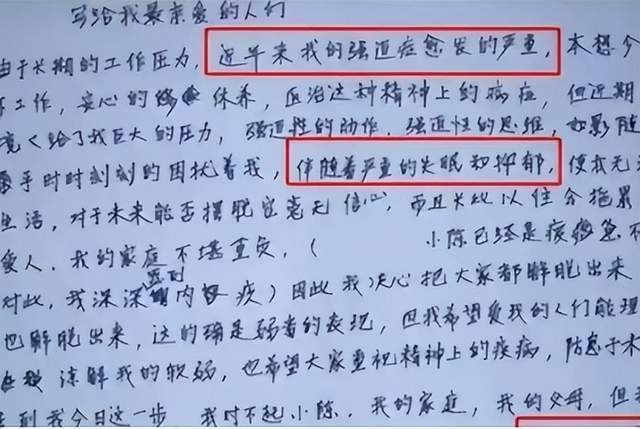 写给我最亲爱的人们
由于长期的工作压力，近年来我的强迫症愈发的严重，本想今
工作，安心的休养，医治这种精神上的病症，但近期
境给了我巨大的压力，强迫性的动作，强迫性的思维，如影随
乎时时刻刻的困扰着我，伴随着严重的失眠和抑郁，使我无法
生活，对于未来能否摆脱它毫无信心，而且长此以往会拖累
爱人，我的家庭不堪重负，（ 小陈已经是疲惫
对此，我深深内疚）因此我决心把大家都解脱出来
也解脱出来，这的确是弱者的表现，但我希望爱我的人们能理
谅解我的软弱，也希望大家重视精神上的疾病，防患于未
到我今日这一步 我对不起小陈，我的家庭，我的父母，但